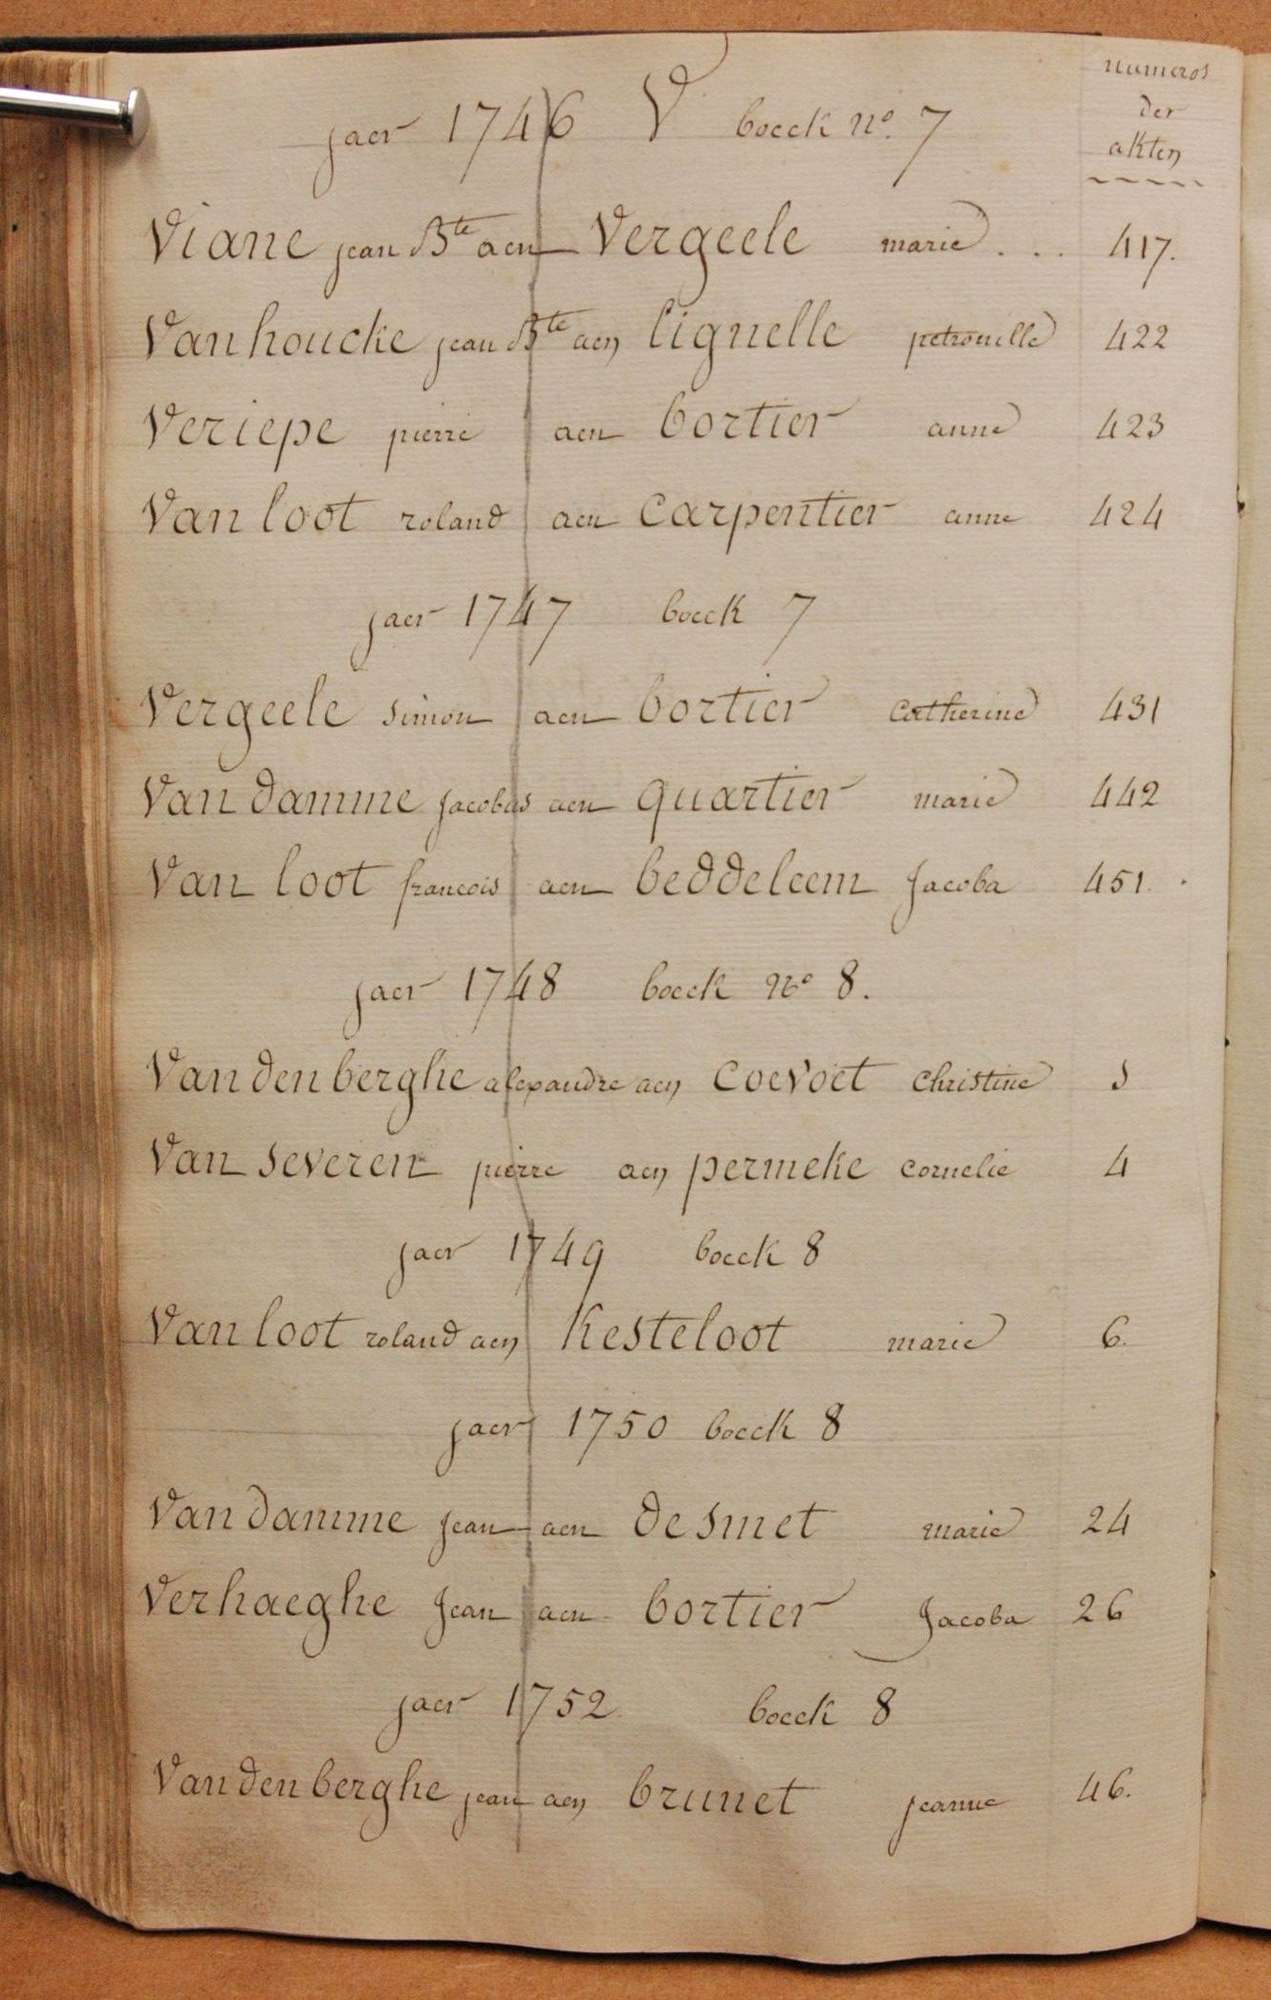 numeros
der
akten
jaer 1746 V boeck n°. 7
Viane jean Bte aen Vergeele marie . . . 417.
Vanhoucke jean Bte aen lignelle petronille 422
Veriepe pierre aen bortier anne 423
Van loot roland aen Carpentier anne 424
jaer 1747 boeck 7
Vergeele simon aen bortier Catherine 431
Van damme jacobus aen quartier marie 442
Van loot francois aen beddeleem Jacoba 451.
jaer 1748 boeck N° 8.
Vandenberghe alexandre aen Coevoet Christine
Van Severen pierre aen permeke cornelie 4
jaer 1749 boeck 8
Van loot roland aen Kesteloot marie 6.
jaer 1750 boeck 8
Vandamme Jean aen desmet marie 24
Verhaeghe Jean aen bortier Jacoba 26
jaer 1752 boeck 8
Vandenberghe jean aen brunet jeanne 46.